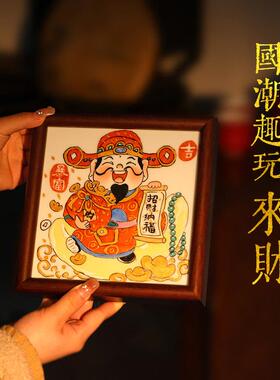 國潮趣玩來財
吉
暴富
招財納福